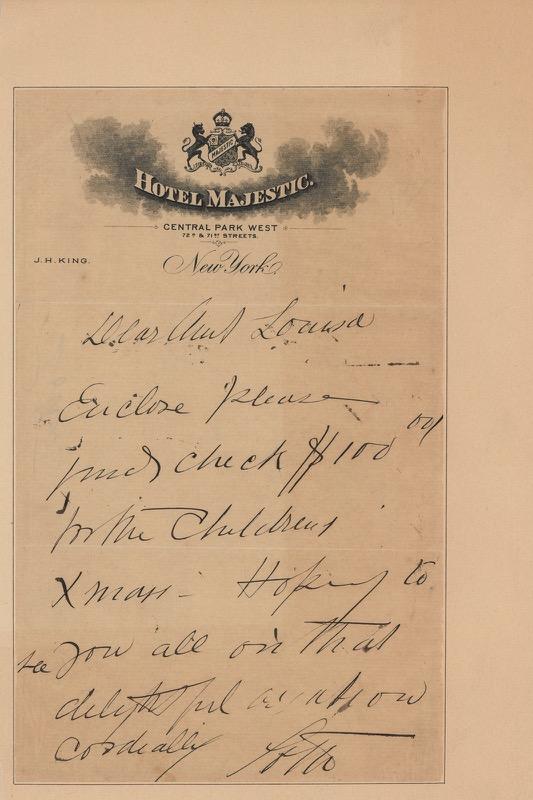 MAJESTIC
HOTEL MAJESTIC.
CENTRAL PARK WEST
72ND & 71ST STREETS.
J.H. KING.
New York
Dear Aunt Louisa
Enclose please
find check $100
for the Childrens
Xmass - Hoping to
see you all on that
delightful occasion
cordially